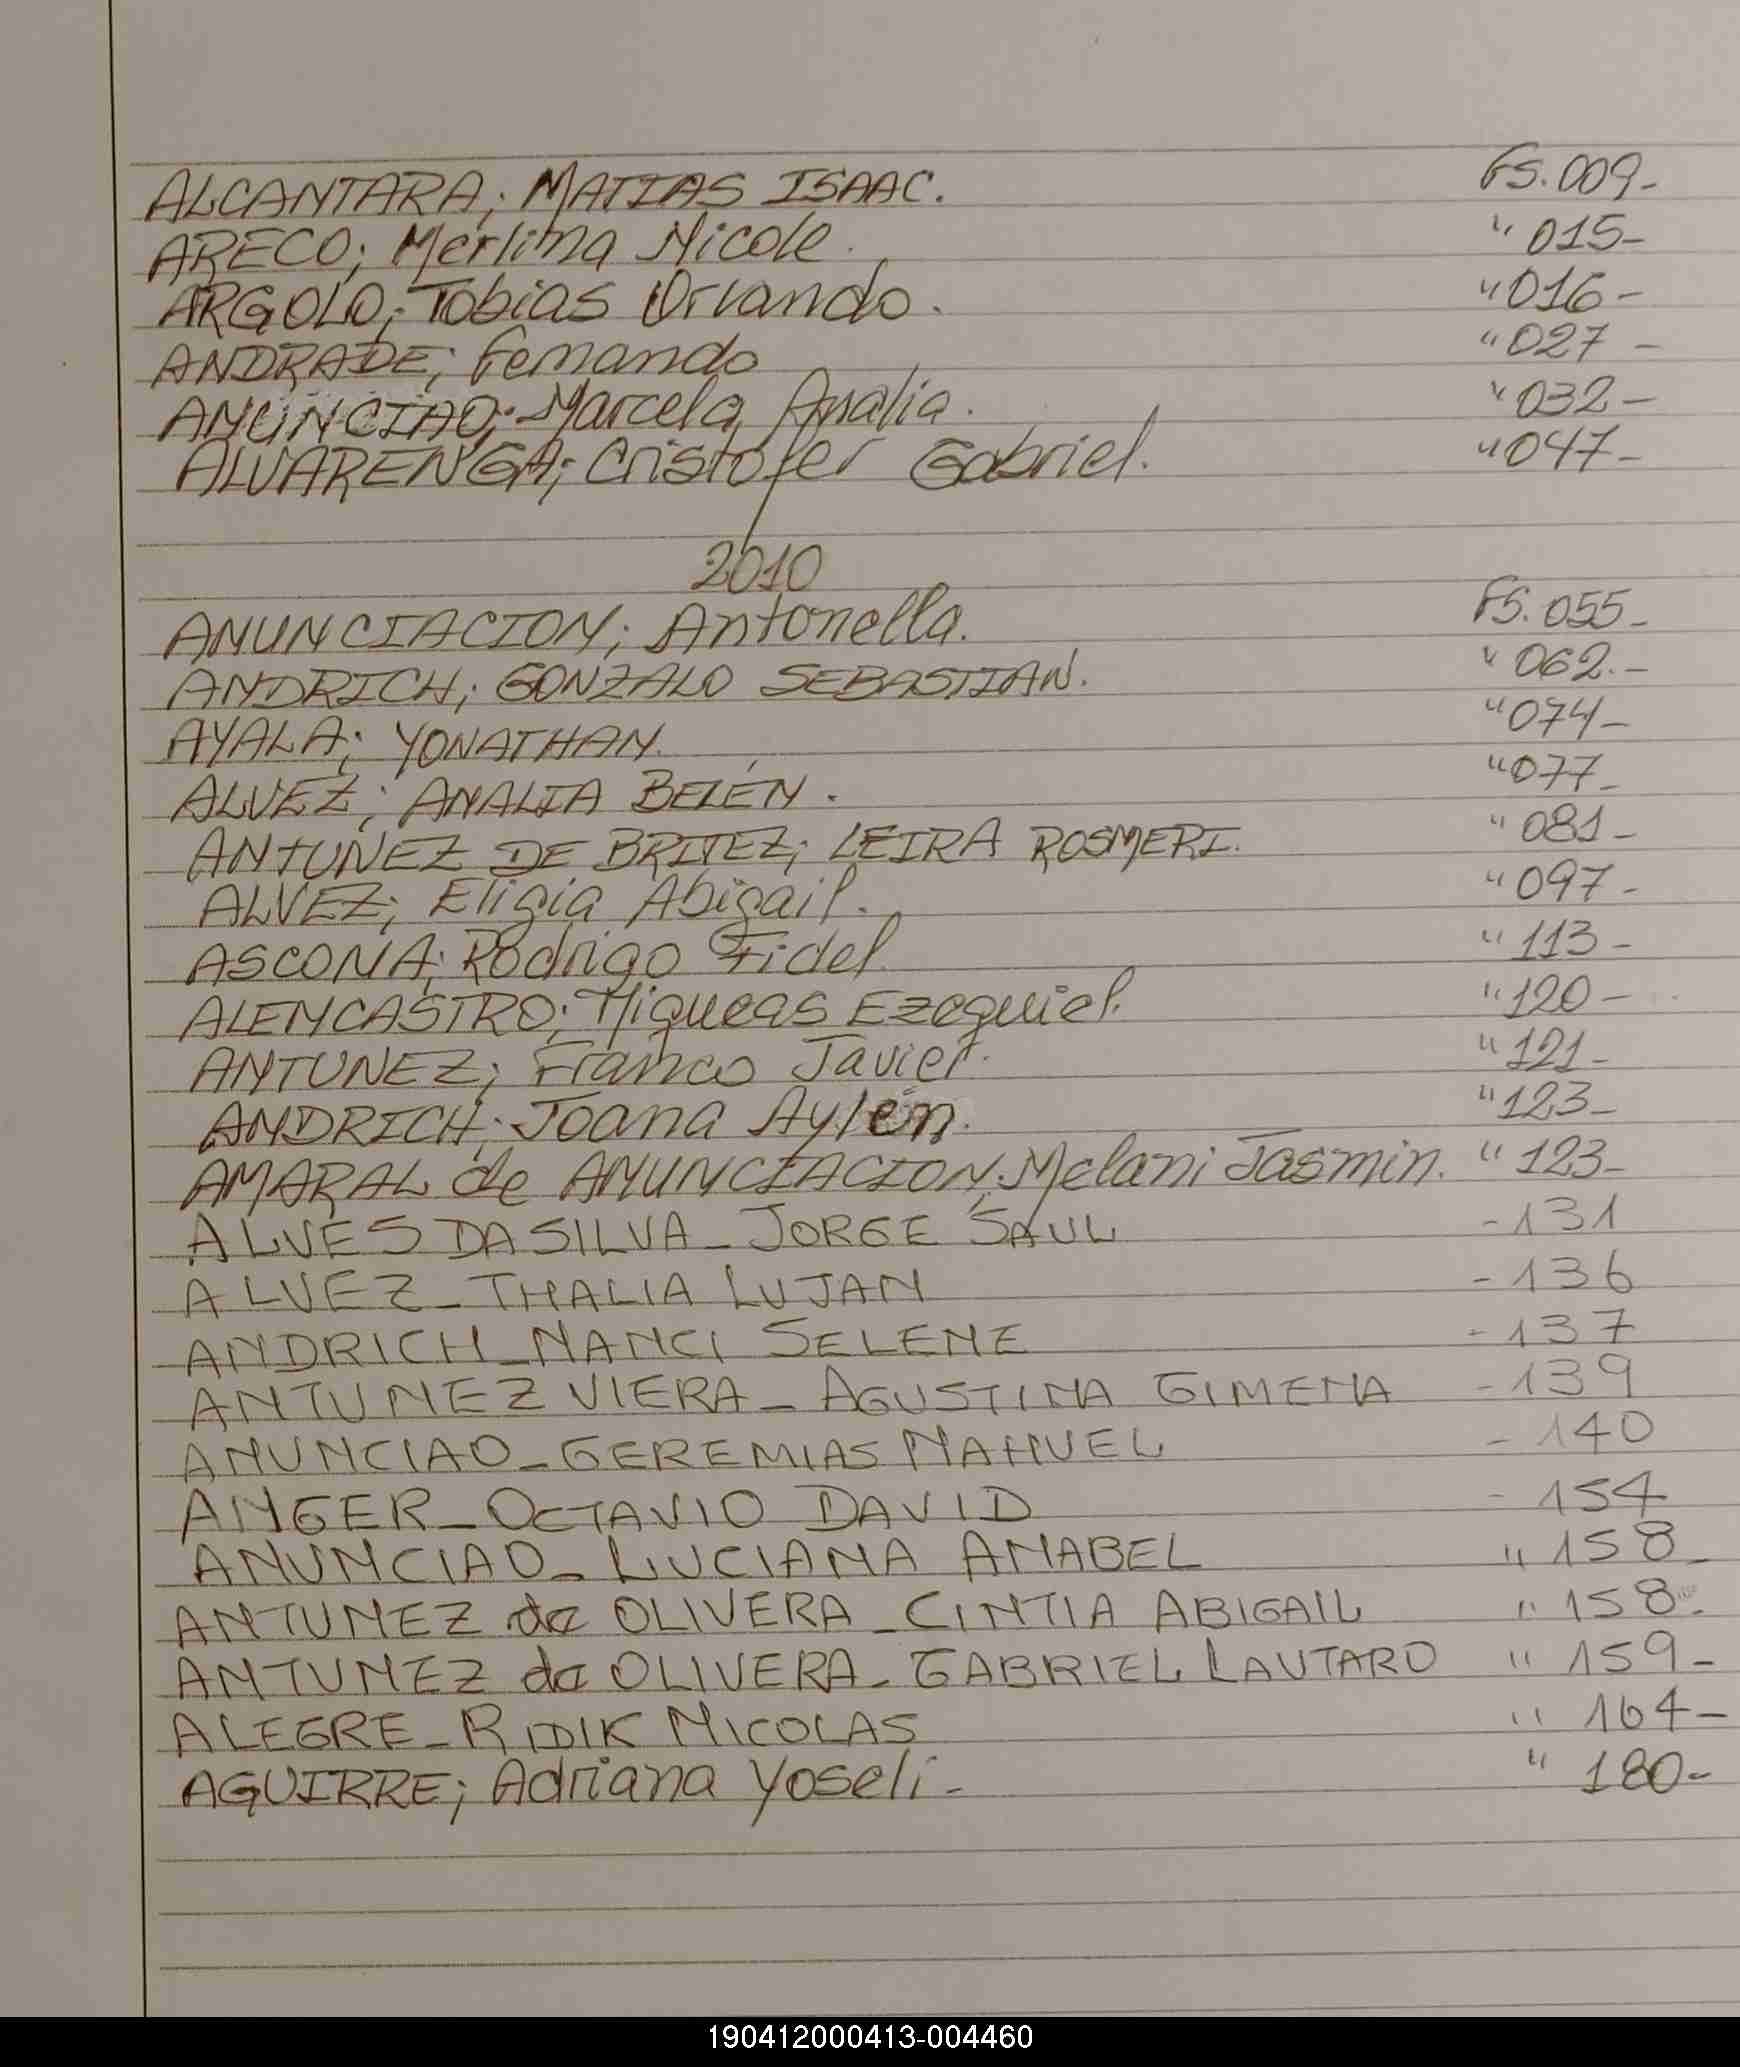 ALCANTARA; MATIAS ISAAC. FS. 009-
ARECO; Merlina Nicole. " 015-
ARGOLO; Tobias Orlando. " 016-
ANDRADE; Fernando " 027-
ANUNCIAO; Marcela Analia. " 032-
ALVARENGA; Cristofer Gabriel. " 047-
2010
ANUNCIACION; Antonella. FS. 055-
ANDRICH; GONZALO SEBASTIAN. " 062.-
AYALA; YONATHAN. " 074-
ALVEZ; ANALIA BELÉN. " 077-
ANTUNEZ DE BRITEZ; LEIRA ROSMERI. " 081-
ALVEZ; Eligia Abigail. " 097-
ASCONA; Rodrigo Fidel. " 113-
ALEMCASTRO; Miqueas Ezequiel. " 120-
ANTUNEZ; Franco Javier. " 121-
ANDRICH; Joana Aylén. " 123-
AMARAL de ANUNCIACION; Melani Jasmin. " 123-
ALVES DA SILVA - JORGE SAUL - 131
ALVEZ - THALIA LUJAN - 136
ANDRICH - NANCI SELENE - 137
ANTUNEZ VIERA - AGUSTINA GIMENA - 139
ANUNCIAO - GEREMIAS NAHUEL - 140
ANGER - OCTAVIO DAVID - 154
ANUNCIAO - LUCIANA ANABEL " 158-
ANTUNEZ da OLIVERA - CINTIA ABIGAIL " 158-
ANTUNEZ da OLIVERA - GABRIEL LAUTARO " 159-
ALEGRE - RIDIK NICOLAS " 164-
AGUIRRE; Adriana Yoseli - " 180-
190412000413-004460